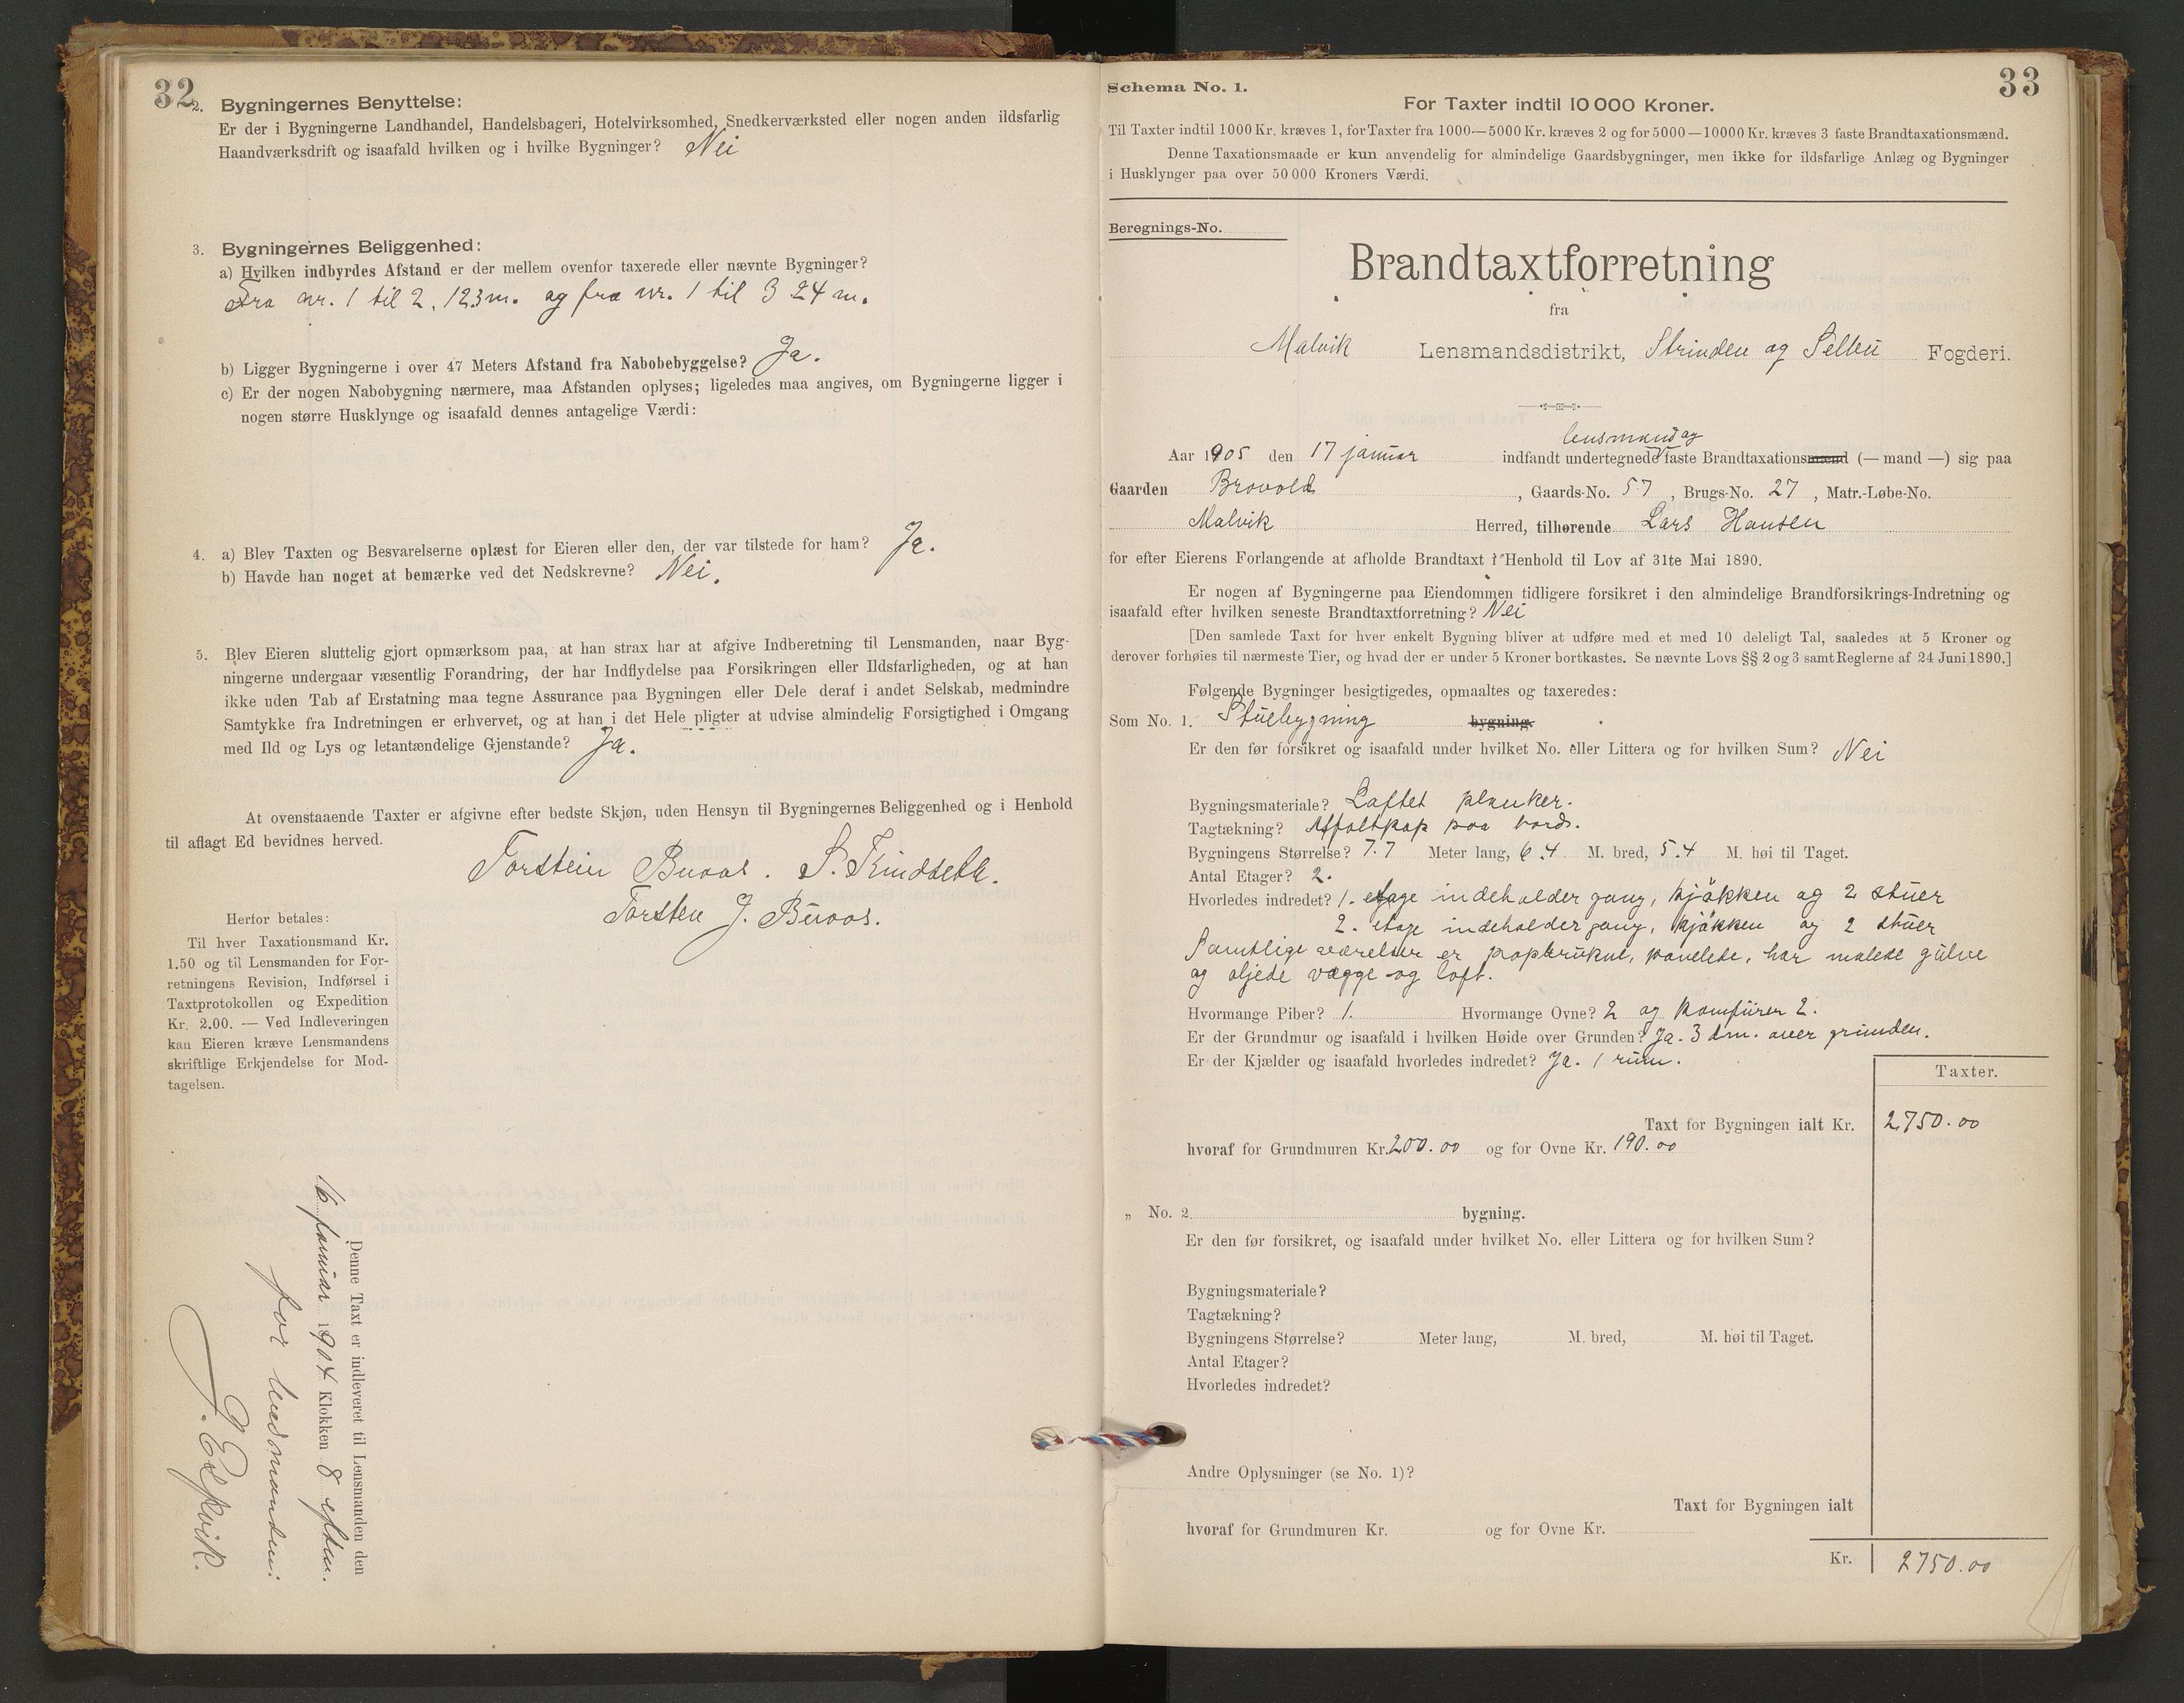 32
2. Bygningernes Benyttelse:
Er der i Bygningerne Landhandel, Handelsbageri, Hotelvirksomhed, Snedkerværksted eller nogen anden ildsfarlig
Haandværksdrift og isaafald hvilken og i hvilke Bygninger? Nei
3. Bygningernes Beliggenhed:
a) Hvilken indbyrdes Afstand er der mellem ovenfor taxerede eller nævnte Bygninger?
Fra nr. 1 til 2, 123 m. og fra nr. 1 til 3 24 m.
b) Ligger Bygningerne i over 47 Meters Afstand fra Nabobebyggelse? Ja.
c) Er der nogen Nabobygning nærmere, maa Afstanden oplyses; ligeledes maa angives, om Bygningerne ligger i
nogen større Husklynge og isaafald dennes antagelige Værdi:
4. a) Blev Taxten og Besvarelserne oplæst for Eieren eller den, der var tilstede for ham? Ja.
b) Havde han noget at bemærke ved det Nedskrevne? Nei.
5. Blev Eieren sluttelig gjort opmærksom paa, at han strax har at afgive Indberetning til Lensmanden, naar Byg-
ningerne undergaar væsentlig Forandring, der har Indflydelse paa Forsikringen eller Ildsfarligheden, og at han
ikke uden Tab af Erstatning maa tegne Assurance paa Bygningen eller Dele deraf i andet Selskab, medmindre
Samtykke fra Indretningen er erhvervet, og at han i det Hele pligter at udvise almindelig Forsigtighed i Omgang
med Ild og Lys og letantændelige Gjenstande? Ja.
At ovenstaaende Taxter er afgivne efter bedste Skjøn, uden Hensyn til Bygningernes Beliggenhed og i Henhold
til aflagt Ed bevidnes herved.
Torstein Buaas. S.
Torsten J. Buaas.
Herfor betales:
Til hver Taxationsmand Kr.
1.50 og til Lensmanden for For-
retningens Revision, Indførsel i
Taxtprotokollen og Expedition
Kr. 2.00. — Ved Indleveringen
kan Eieren kræve Lensmandens
skriftlige Erkjendelse for Mod-
tagelsen.
Denne Taxt er indleveret til Lensmanden den
16 januar 1904 Klokken 8 eftm.
for lensmanden:
J.
33
Schema No. 1.
For Taxter indtil 10 000 Kroner.
Til Taxter indtil 1000 Kr. kræves 1, for Taxter fra 1000—5000 Kr. kræves 2 og for 5000—10000 Kr. kræves 3 faste Brandtaxationsmænd.
Denne Taxationsmaade er kun anvendelig for almindelige Gaardsbygninger, men ikke for ildsfarlige Anlæg og Bygninger
i Husklynger paa over 50 000 Kroners Værdi.
Beregnings-No.
Brandtaxtforretning
fra
Malvik Lensmandsdistrikt, Strinden og Selbu Fogderi.
lensmand og
Aar 1905 den 17 januar indfandt undertegnede faste Brandtaxationsmænd (— mand —) sig paa
Gaarden Brovold, Gaards-No. 57, Brugs-No. 27, Matr.-Løbe-No.
Malvik Herred, tilhørende Lars Hansen
for efter Eierens Forlangende at afholde Brandtaxt i Henhold til Lov af 31te Mai 1890.
Er nogen af Bygningerne paa Eiendommen tidligere forsikret i den almindelige Brandforsikrings-Indretning og
isaafald efter hvilken seneste Brandtaxtforretning? Nei
[Den samlede Taxt for hver enkelt Bygning bliver at udføre med et med 10 deleligt Tal, saaledes at 5 Kroner og
derover forhøies til nærmeste Tier, og hvad der er under 5 Kroner bortkastes. Se nævnte Lovs §§ 2 og 3 samt Reglerne af 24 Juni 1890.]
Følgende Bygninger besigtigedes, opmaaltes og taxeredes:
Som No. 1. Stuebygning bygning.
Er den før forsikret og isaafald under hvilket No. eller Littera og for hvilken Sum? Nei
Bygningsmateriale? Laftet planker.
Tagtækning? Asfaltpap paa bord.
Bygningens Størrelse? 7.7 Meter lang, 6.4 M. bred, 5.4 M. høi til Taget.
Antal Etager? 2.
Hvorledes indret? 1. etage indeholder gang, kjøkken og 2 stuer
2. etage indeholder gang, kjøkken og 2 stuer
Samtlige værelser er papbrukne, panelede, har malede gulve
og oljede vægge og loft.
Hvormange Piber? 1. Hvormange Ovne? 2 og komfurer 2.
Er der Grundmur og isaafald i hvilken Høide over Grunden? Ja. 3 dm. over grunden.
Er der Kjælder og isaafald hvorledes indredet? Ja. 1 rum.
Taxter.
Taxt for Bygningen ialt Kr. 2750.00
hvoraf for Grundmuren Kr. 200.00 og for Ovne Kr. 190.00
„ No. 2. bygning.
Er den før forsikret, og isaafald under hvilket No. eller Littera og for hvilken Sum?
Bygningsmateriale?
Tagtækning?
Bygningens Størrelse? Meter lang, M. bred, M. høi til Taget.
Antal Etager?
Hvorledes indredet?
Andre Oplysninger (se No. 1)?
Taxt for Bygningen ialt
hvoraf for Grundmuren Kr. og for Ovne Kr.
Kr. 2750.00